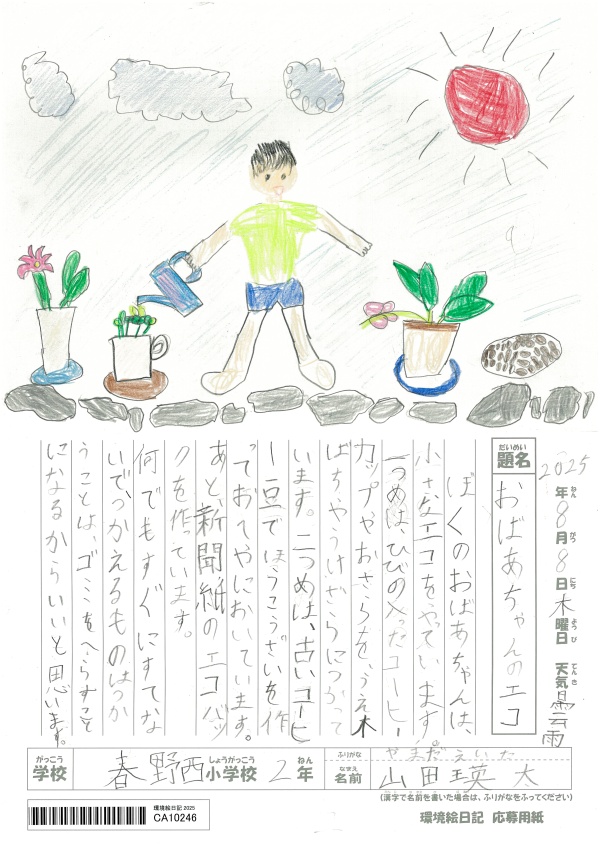 2025年8月8日木曜日 天気 曇雨
ねん がつ にち ようび てんき
だいめい
題名 おばあちゃんのエコ
ぼくのおばあちゃんは、
小さなエコをやっています。
一つめはひびの入ったコーヒー
カップやおさらを、うえ木
ばちやうけざらにつかって
います。二つめは、古いコーヒ
ー豆でほうこうざいを作
っておへやにおいています。
あと、新聞紙のエコバッ
クを作っています。
何でもすぐにすてな
いで、つかえるものはつか
うことは、ゴミをへらすこと
になるからいいと思います。
がっこう しょうがっこう ねん
学校 春野西小学校 2年
ふりがな やまだえいた
なまえ
名前 山田瑛太
(漢字で名前を書いた場合は、ふりがなをふってください)
環境絵日記 2025
CA10246
環境絵日記 応募用紙